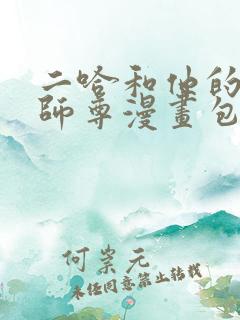 二哈和他的
師尊漫畫包
何棠元
未经同意禁止转载